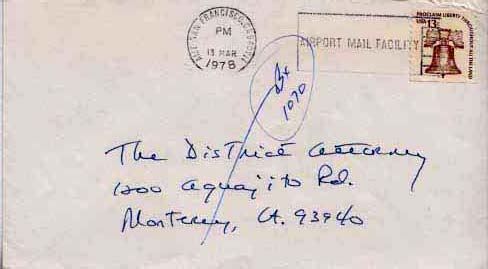 AMF SAN FRANCISCO,
PM
13 MAR
1978
AIRPORT MAIL FACILITY
PROCLAIM LIBERTY THROUGHOUT ALL THE LAND
USA 13c
Bx
1070
The District Attorney
1200 Aguajito Rd.
Monterey, CA. 93940